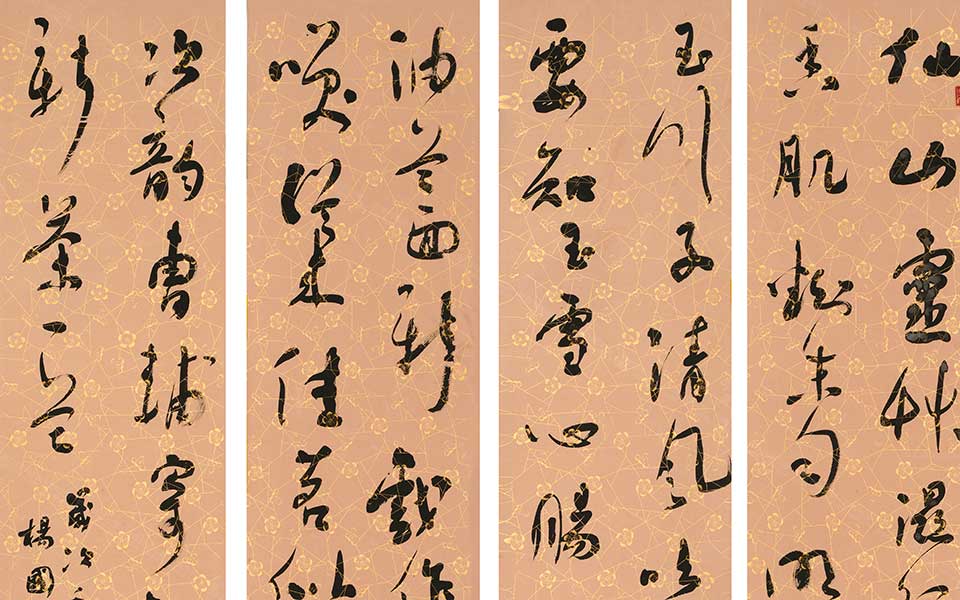 仙山靈艸濕
香肌粉未勻明
玉川子清風吹
要知玉雪心腸
油首面新戲作
笑從來佳茗似
次韻曹輔寄
新茶一首
歲次
楊國